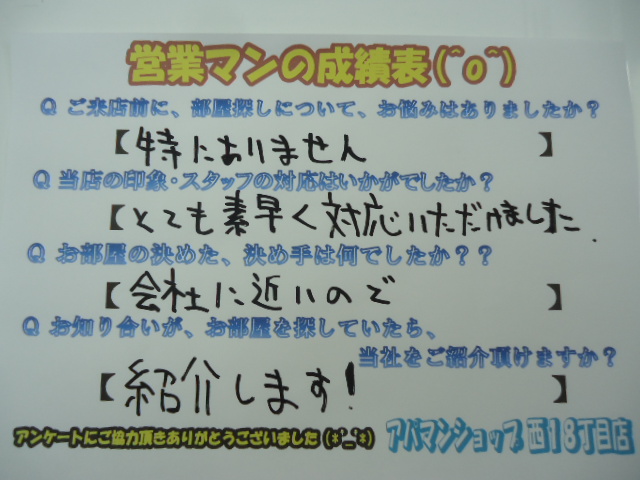 営業マンの成績表(^o^)
Q ご来店前に、部屋探しについて、お悩みはありましたか？
【特にありません】
Q 当店の印象・スタッフの対応はいかがでしたか？
【とても素早く対応いただけました.
Q お部屋の決めた、決め手は何でしたか？？
【会社に近いので】
Q お知り合いが、お部屋を探していたら、
当社をご紹介頂けますか？
【紹介します！】
アンケートにご協力頂きありがとうございました(*'_'*)
アパマンショップ 西18丁目店